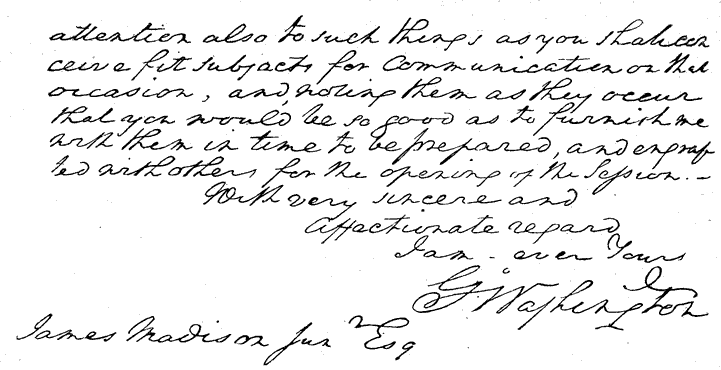 attention also to such things as you shall con
ceive fit subjects for Communication on that
occasion, and, noting them as they occur
that you would be so good as to furnish me
with them in time to be prepared, and engraf
ted with others for the opening of the Session. –
With very sincere and
Affectionate regard
I am - ever Yours
Go Washington
James Madison Junr Esq